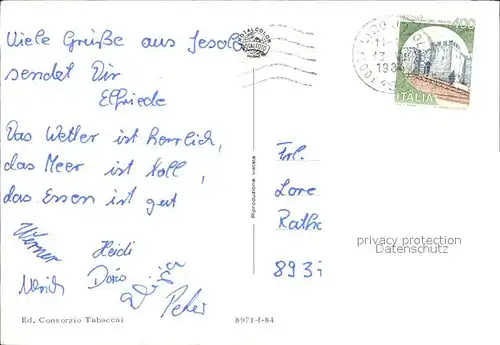 Viele Grüße aus Jesolo
sendet Dir
Elfriede
Das Wetter ist herrlich,
das Meer ist toll,
das Essen ist gut
Werner
Heidi
Ulrich
Doris
Peter
Ed. Consorzio Tabaccai
8971-f-84
Riproduzione vietata
400
ITALIA
Frl.
Lore
Rath
893
privacy protection
Datenschutz